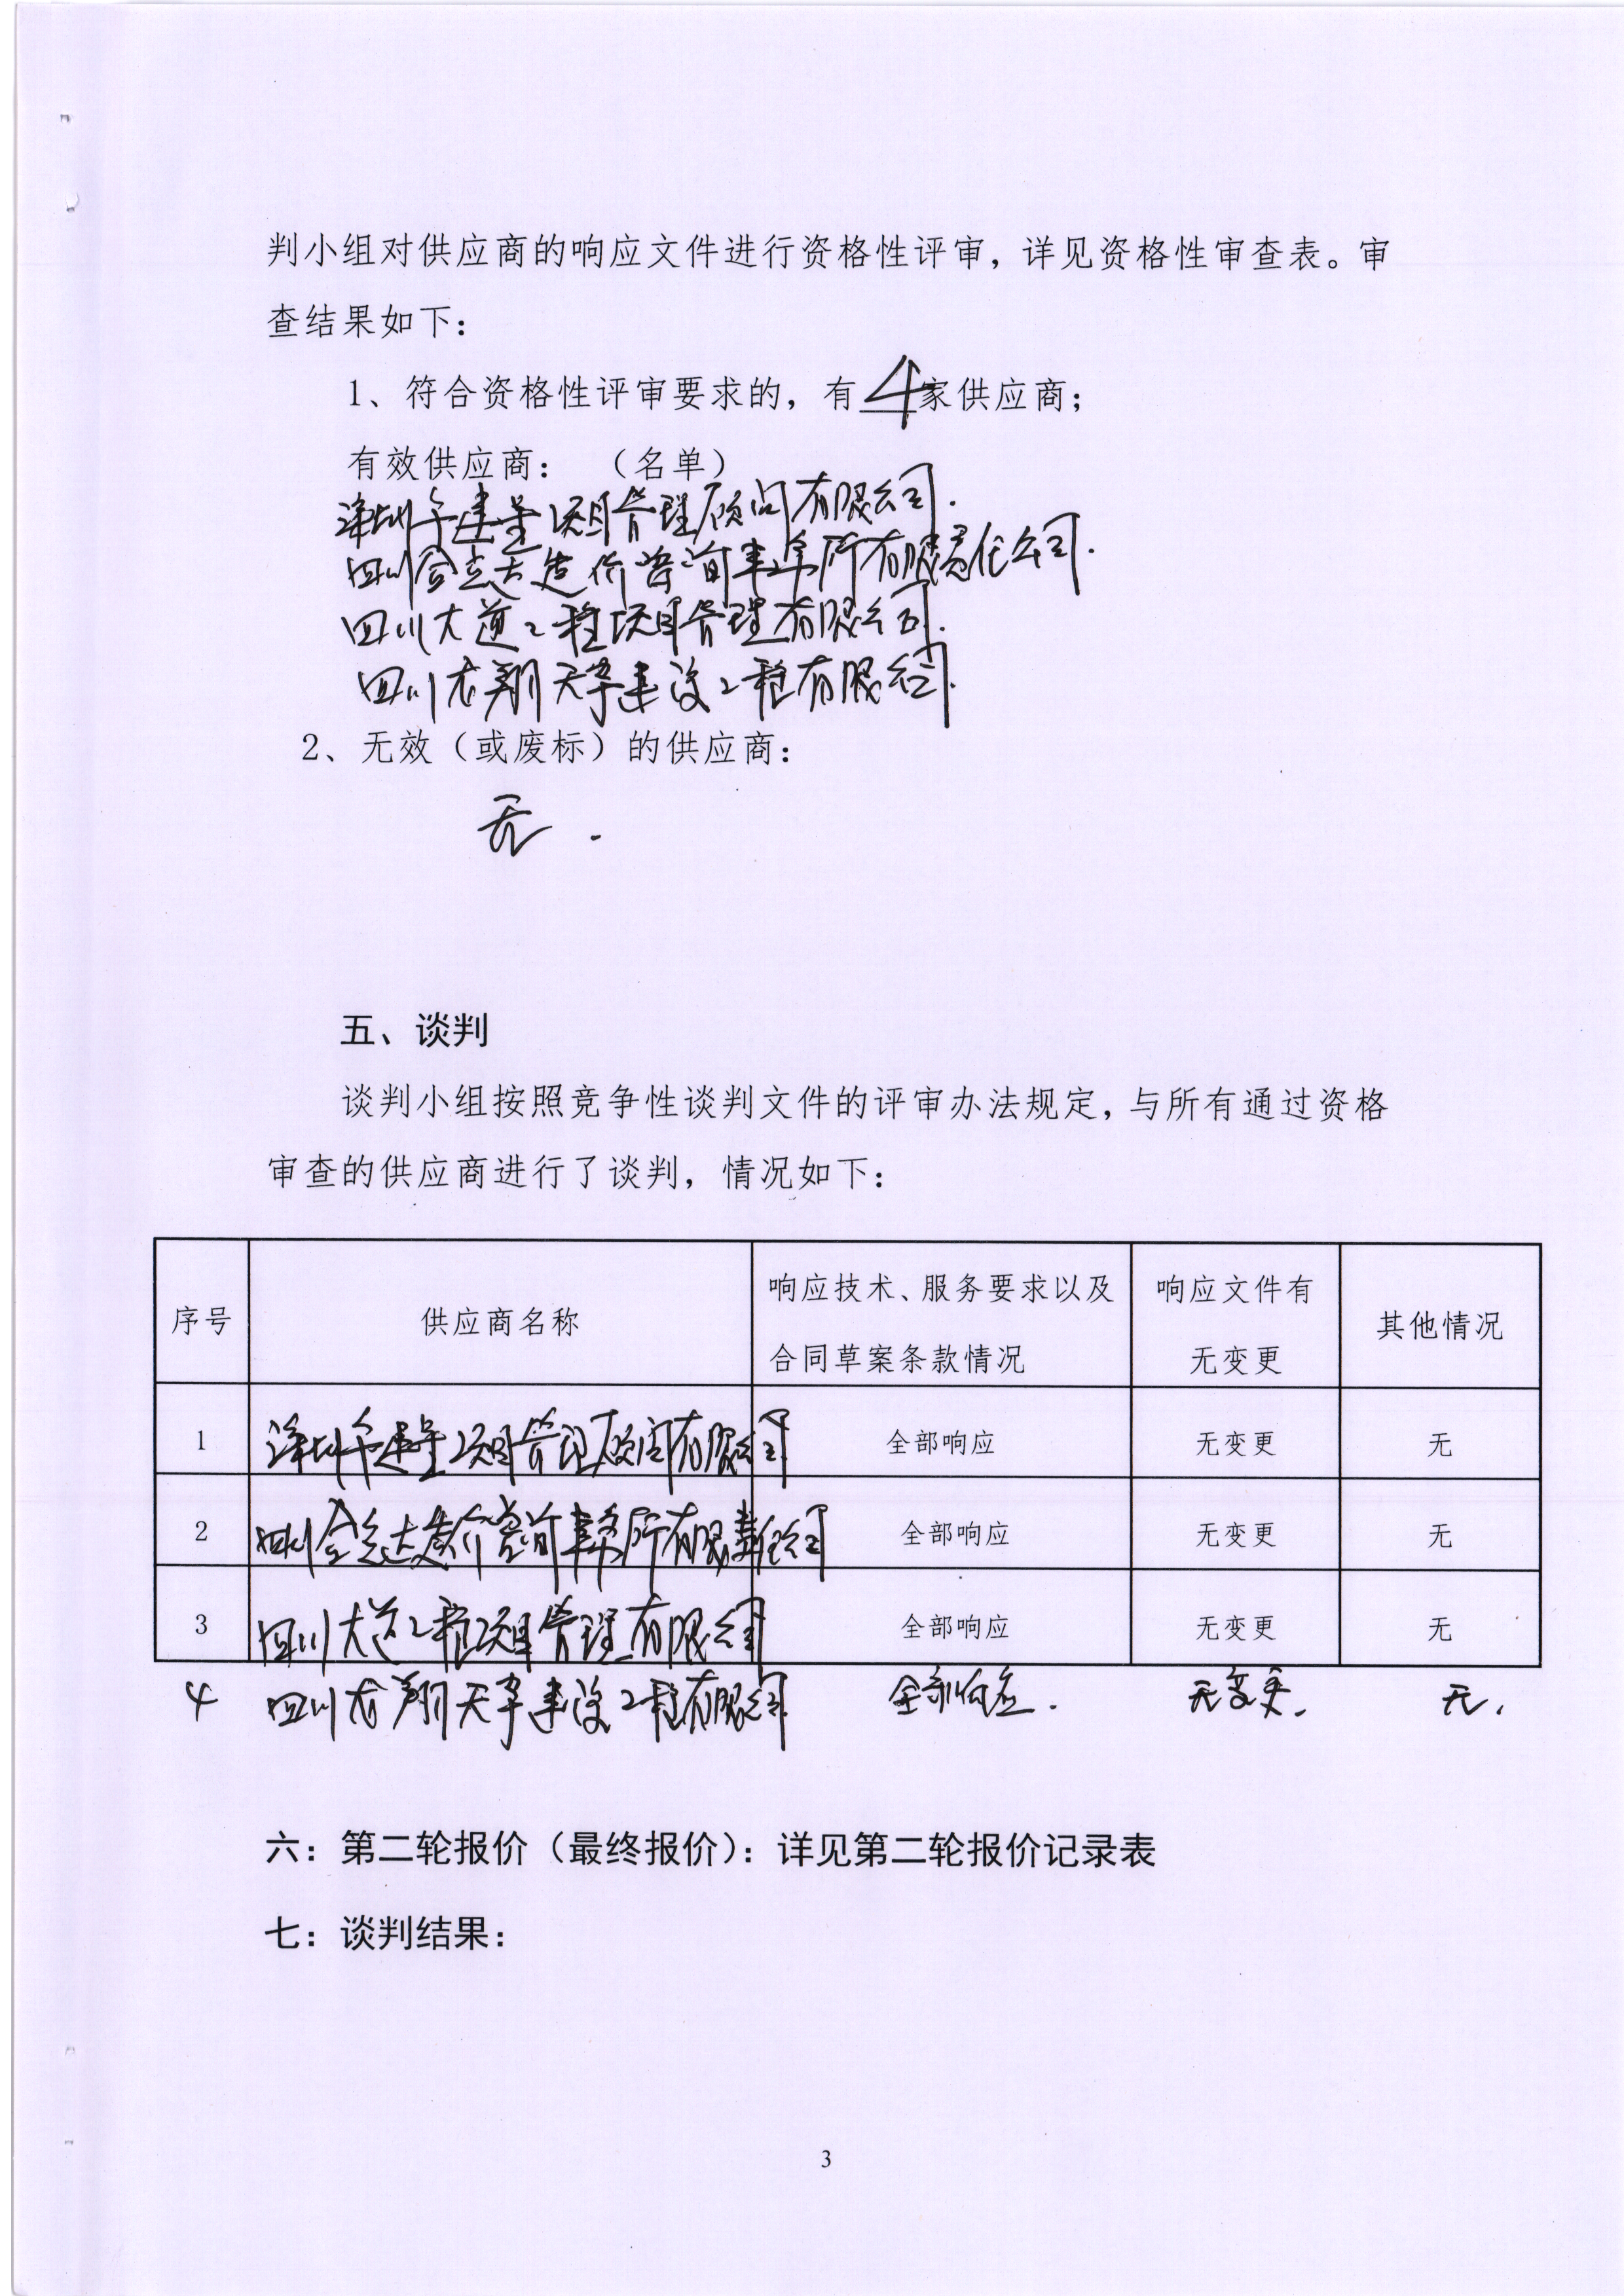 判小组对供应商的响应文件进行资格性评审，详见资格性审查表。审
查结果如下：
1、符合资格性评审要求的，有4家供应商；
有效供应商： （名单）
深圳 建 项目管理顾问有限公司.
四川 造价咨询事务所有限责任公司.
四川大道工程项目管理有限公司.
四川龙翔天宇建设工程有限公司.
2、无效（或废标）的供应商：
无.
五、谈判
谈判小组按照竞争性谈判文件的评审办法规定，与所有通过资格
审查的供应商进行了谈判，情况如下：
序号 供应商名称 响应技术、服务要求以及合同草案条款情况 响应文件有无变更 其他情况
1 深圳 建 项目管理顾问有限公司 全部响应 无变更 无
2 四川 造价咨询事务所有限责任公司 全部响应 无变更 无
3 四川大道工程项目管理有限公司 全部响应 无变更 无
4 四川龙翔天宇建设工程有限公司 全部响应. 无变更. 无.
六：第二轮报价（最终报价）：详见第二轮报价记录表
七：谈判结果：
3